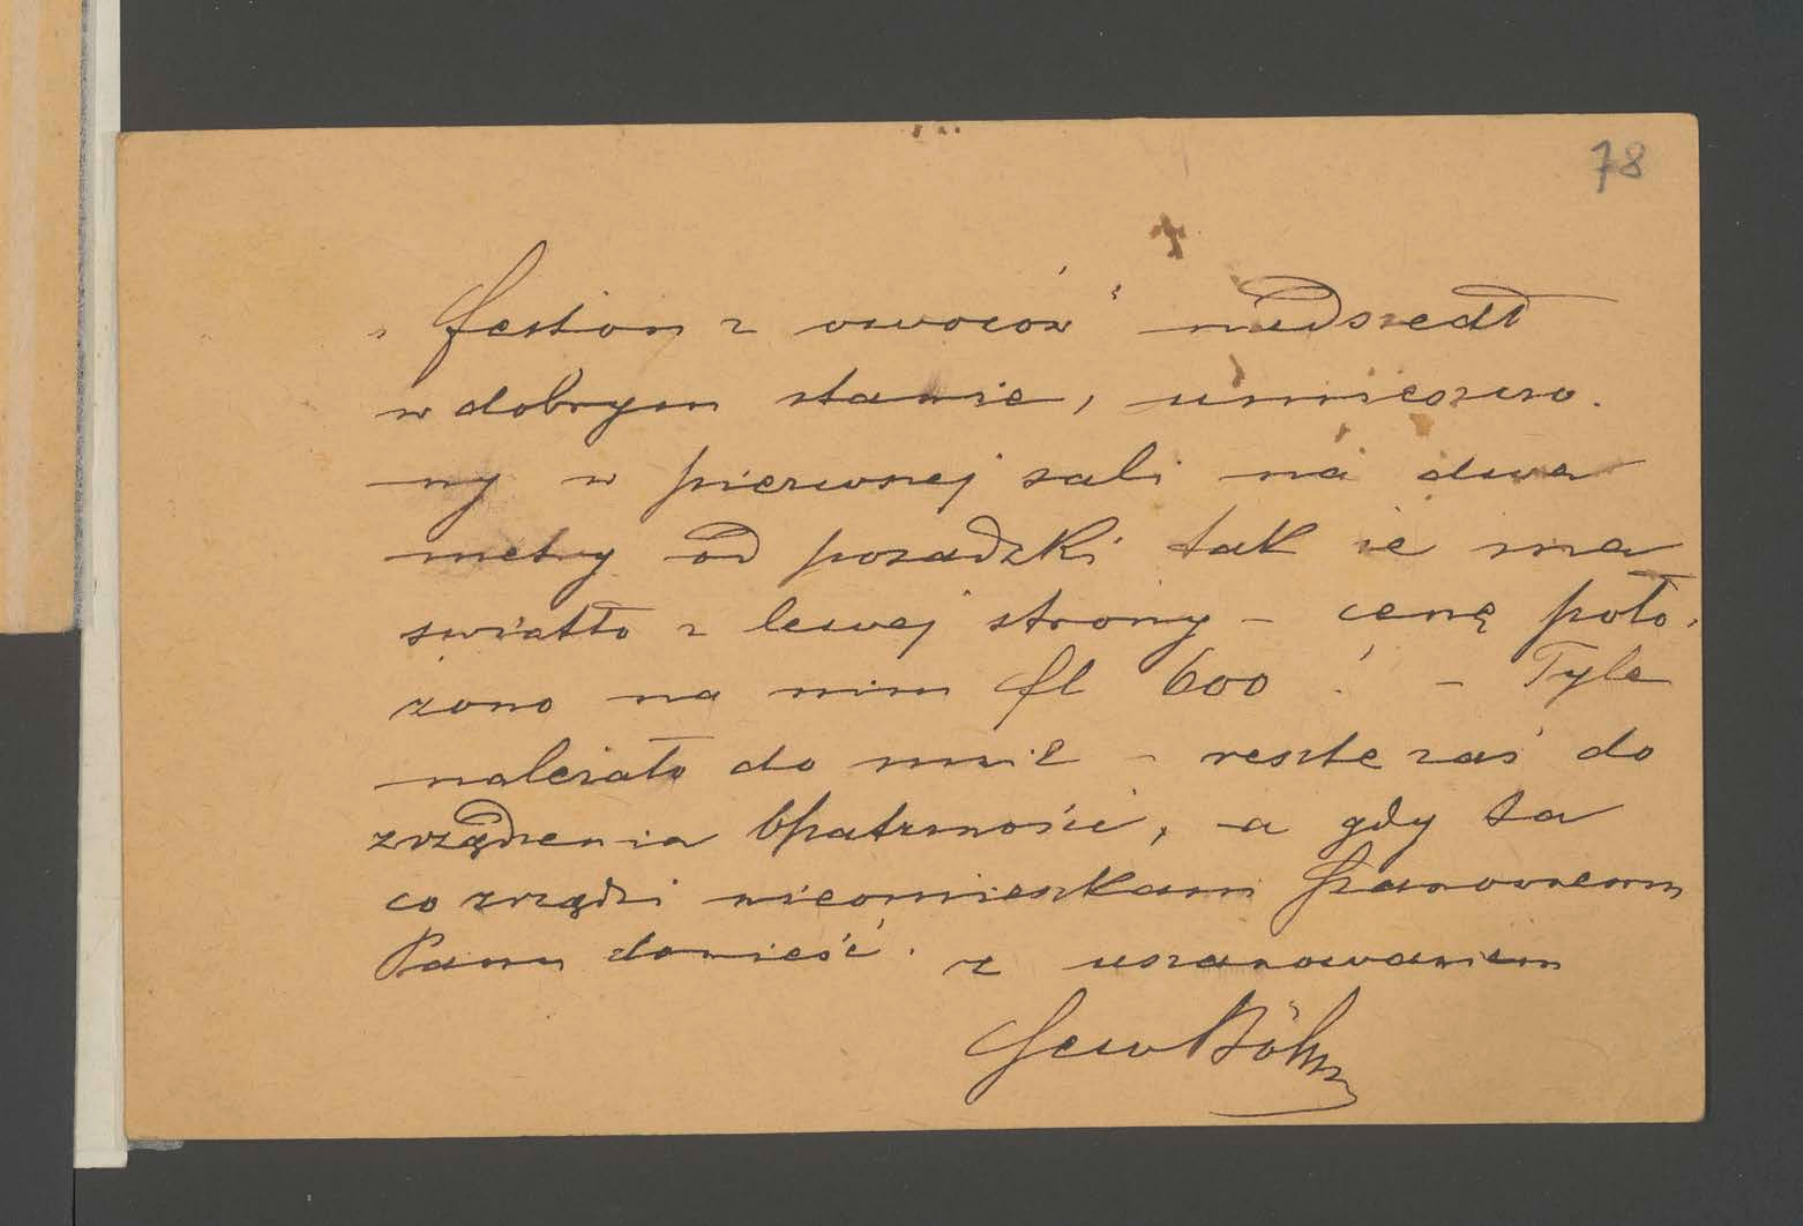 78
„Feston z owoców” nadszedł
w dobrym stanie, umieszczo-
ny w pierwszej sali na dwa
metry od posadzki tak że ma
światło z lewej strony – cenę poło-
żono na nim fl 600 ! – Tyle
należało do mnie – resztę zaś do
zrządzenia Opatrzności, a gdy ta
co zrządzi nieomieszkam Szanownemu
Panu donieść. z uszanowaniem
Böhm